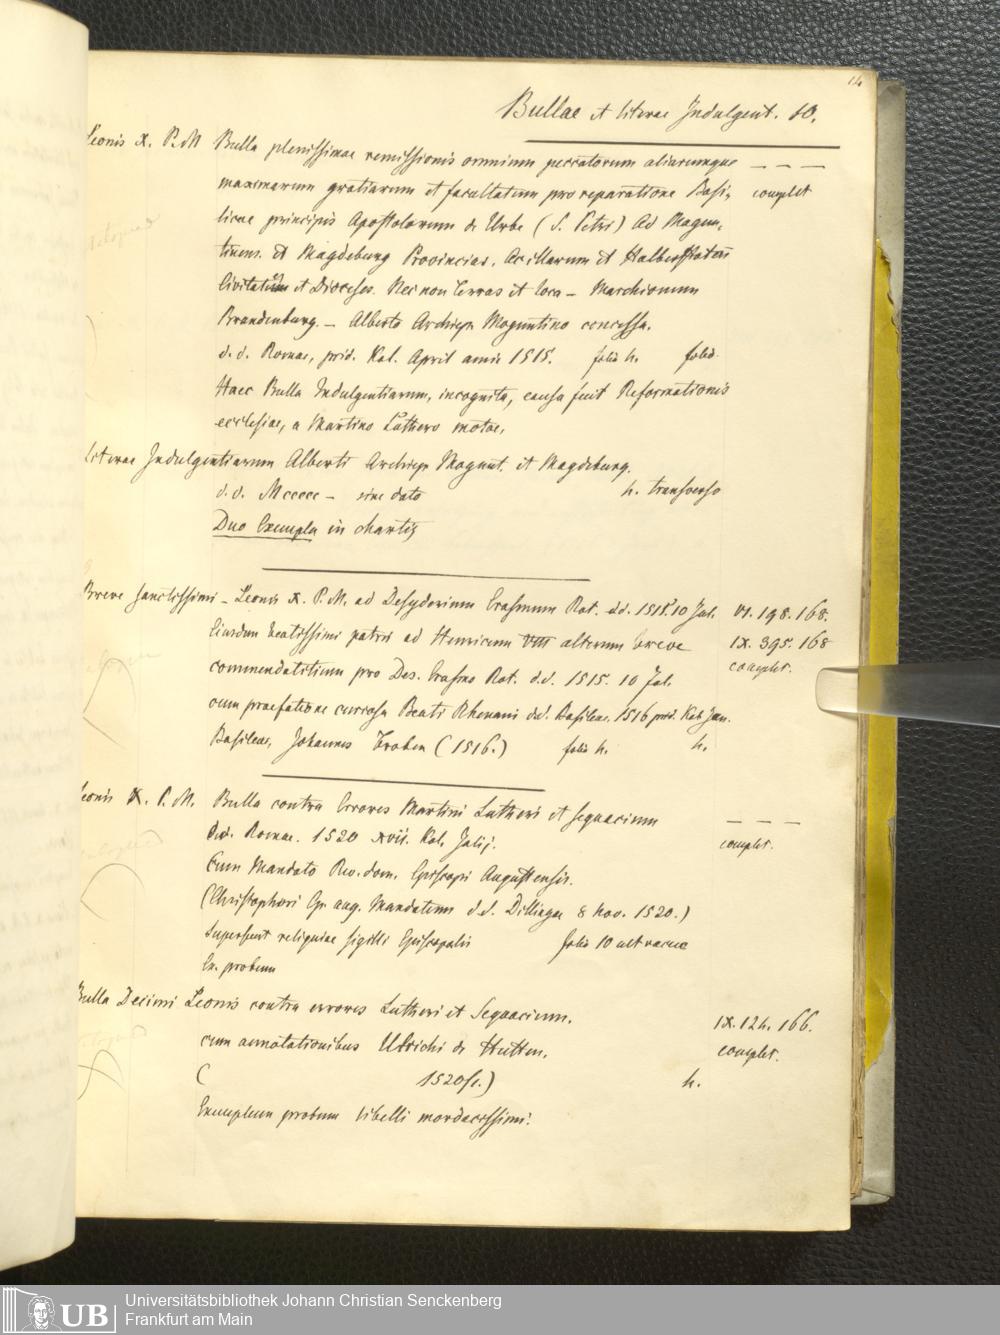 14
Bullae et literae Indulgent. 10.
Leonis X. P. M Bulla plenissimae remissionis omnium peccatorum aliarumque — — —
maximarum gratiarum et facultatum pro reparatione Basi- complet
licae principis Apostolorum de Urbe (S. Petri) Ad Magun-
tinens. et Magdeburg Provincias. Ac illarum et Halberstaten
Civitates et Dioceses. Necnon terras et loca – Marchionum
Brandenburg. – Alberto Archiep. Moguntino concessa.
d. d. Romae, prid. Kal. April anni 1515. folia h. folio.
Haec Bulla Indulgentiarum, incognita, causa fuit Reformationis
ecclesiae, a Martino Luthero motae.
Literae Indulgentiarum Alberti Archiep Mogunt. et Magdeburg.
d. d. Mccccc – sine dato h. transverso
Duo Exempla in chartis
Breve sanctissimi – Leonis X. P. M. ad Desyderium Erasmum Rot. d.d. 1515. 10 Jul. VI. 198. 168.
Eiusdem beatissimi patris ad Henricum VIII alterum breve IX. 395. 168
commendatitium pro Des. Erasmo Rot. d.d. 1515. 10 Jul. complet.
cum praefatione Beati Rhenani d.d. Basileae. 1516 prid. Kal Jan.
Basileae, Johannes Froben (1516.) folia h. h.
Leonis X. P. M. Bulla contra Errores Martini Lutheri et sequacium — — —
D.d. Romae. 1520 XVII. Kal. Julij. complet.
Cum Mandato Rev. dom. Episcopi Augustensis.
(Christophori Ep. aug. Mandatum d.d. Dillingae 8 Nov. 1520.)
Supersunt reliquiae sigilli Episcopalis folia 10 ult vacue
Ex. probum
Bulla Decimi Leonis contra errores Lutheri et Sequacium. IX. 124. 166.
cum annotationibus Ulrichi de Hutten. complet.
( 1520/1.) h.
Exemplum probum libelli mordacissimi.
Universitätsbibliothek Johann Christian Senckenberg
Frankfurt am Main
UB